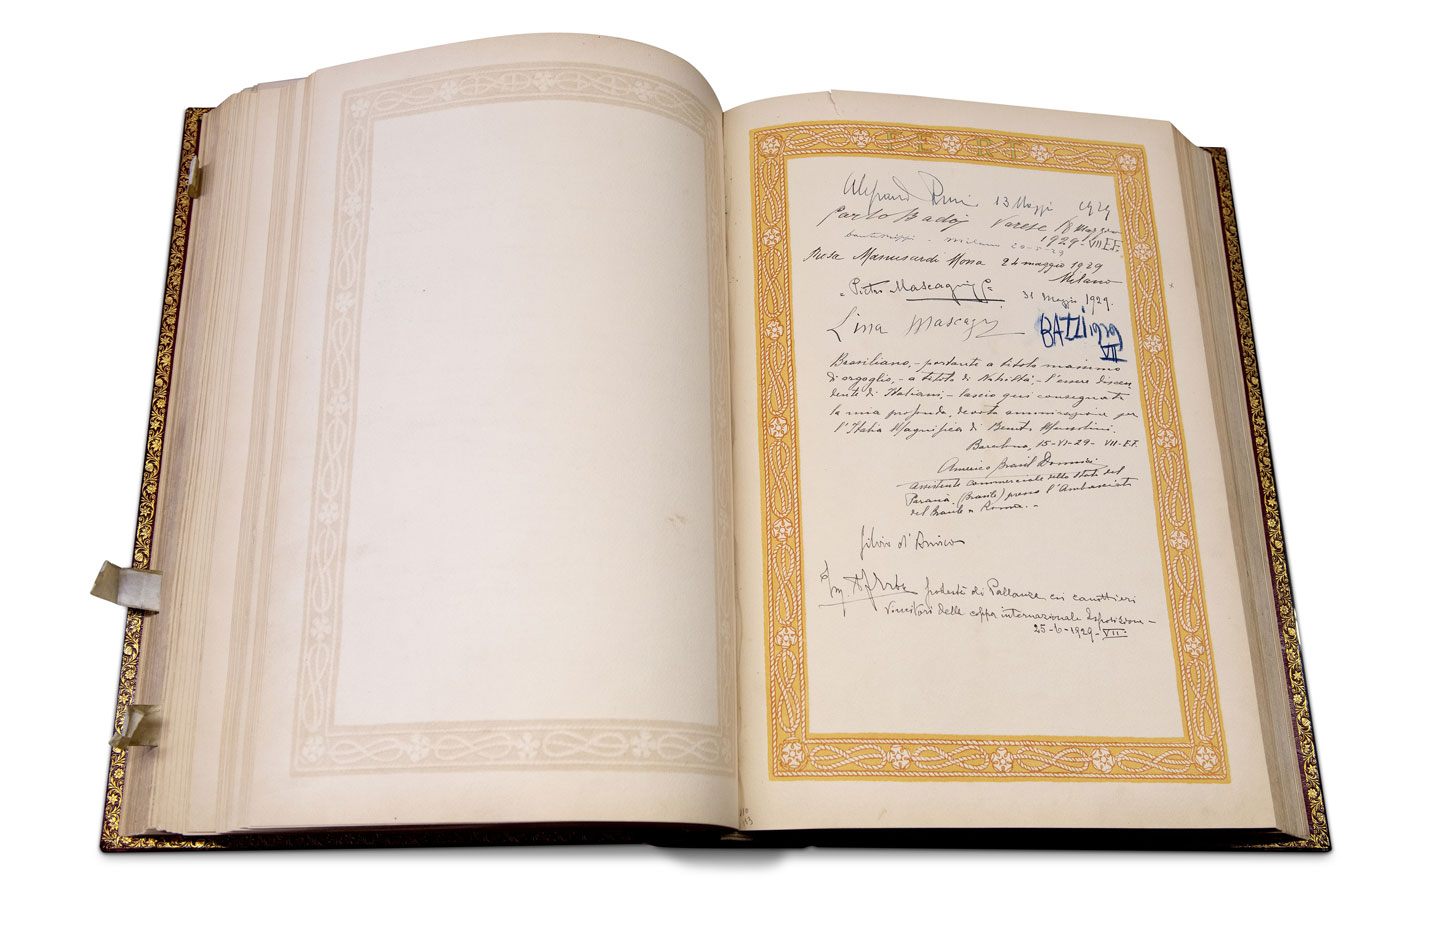 FERT
13 Maggio 1929
Carlo Badoj Varese 18 Maggio
1929 - VII E.F.
Milano 20-5-29
Mona 24 maggio 1929
Milano
"Pietro Mascagni"
31 Maggio 1929.
Lina Mascagni
BAZZI 1929
VII
Brasiliano, - portante a titolo massimo
di orgoglio, - a titolo di Nobiltà, - l'essere discen
denti di Italiani, - lascio qui consegnata
la mia profonda, devota ammirazione per
l'Italia Magnifica di Benito Mussolini.
Barcelona, 15-VI-29 - VII-E.F.
Americo Brasil
assistente commerciale dello Stato del
Paranà (Brasile) presso l'Ambasciata
del Brasile a Roma. -
Silvio d'Amico
Ing. podestà di Pallanza coi canottieri
vincitori della coppa internazionale Esposizione -
25-6-1929 - VII